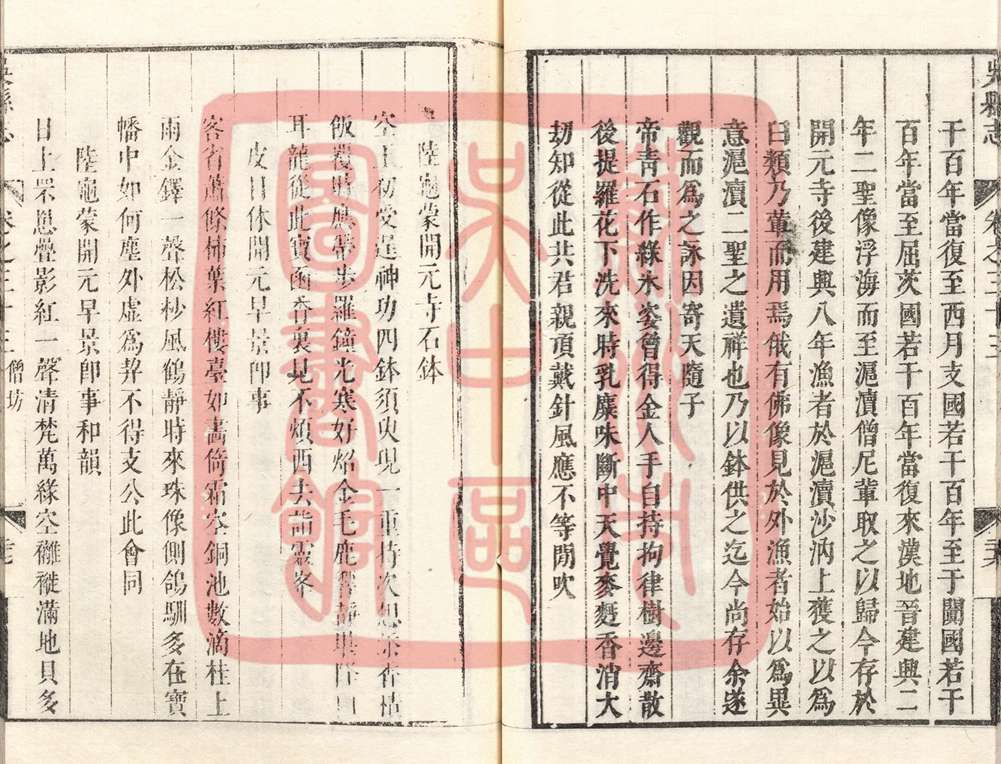 吳縣志
卷之三十三
干百年當復至西月支國若干百年至于闐國若干
百年當至屈茨國若干百年當復來漢地晉建興二
年二聖像浮海而至滬瀆僧尼輩取之以歸今存於
開元寺後建興八年漁者於滬瀆沙汭上獲之以為
臼類乃葷而用焉俄有佛像見於外漁者始以為異
意滬瀆二聖之遺祥也乃以鉢供之迄今尚存余遂
觀而為之詠因寄天隨子
帝青石作綠水姿曾得金人手自持拘律樹邊齋散
後提羅花下洗來時乳麋味斷中天覺麥麨香消大
刧知從此共君親頂戴針風應不等閒吹
陸龜蒙開元寺石鉢
空王初受逞神功四鉢須臾現一重持次想添香積
飯覆時應帶步羅鐘光寒好照金毛鹿響靜堪降
耳龍從此寶函香裏見不煩西去詣靈峯
皮日休開元早景即事
客省蕭條柿葉紅樓臺如畫倚霜空銅池數滴桂上
雨金鐸一聲松杪風鶴靜時來珠像側鴿馴多在寶
幡中如何塵外虛為契不得支公此會同
陸龜蒙開元早景即事和韻
日上罘罳疊影紅一聲清梵萬緣空褷襹滿地貝多
吳縣志
卷之三十三
僧坊
蘇州市
吳中區
圖書館